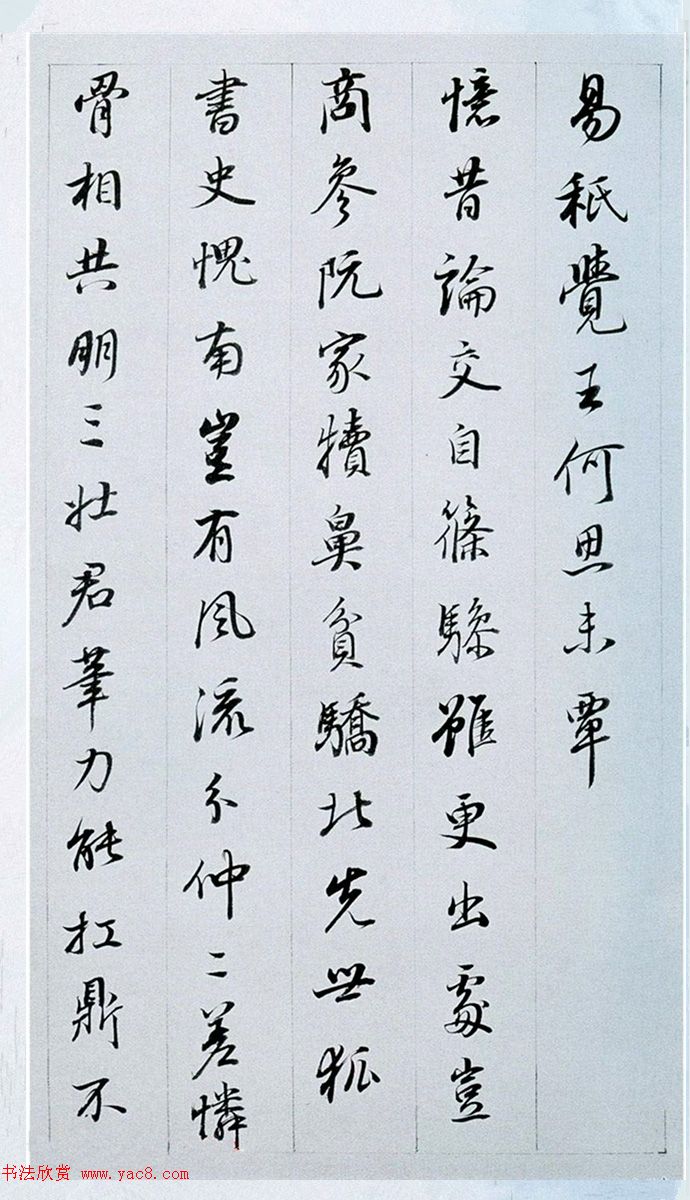 易秖覺王何思未覃
憶昔論交自篠驂雖更出處豈
商參阮家犢鼻貧驕北先世狐
書史愧南豈有風流分仲二差憐
骨相共朋三壯君筆力能扛鼎不
书法欣赏 www.yac8.com